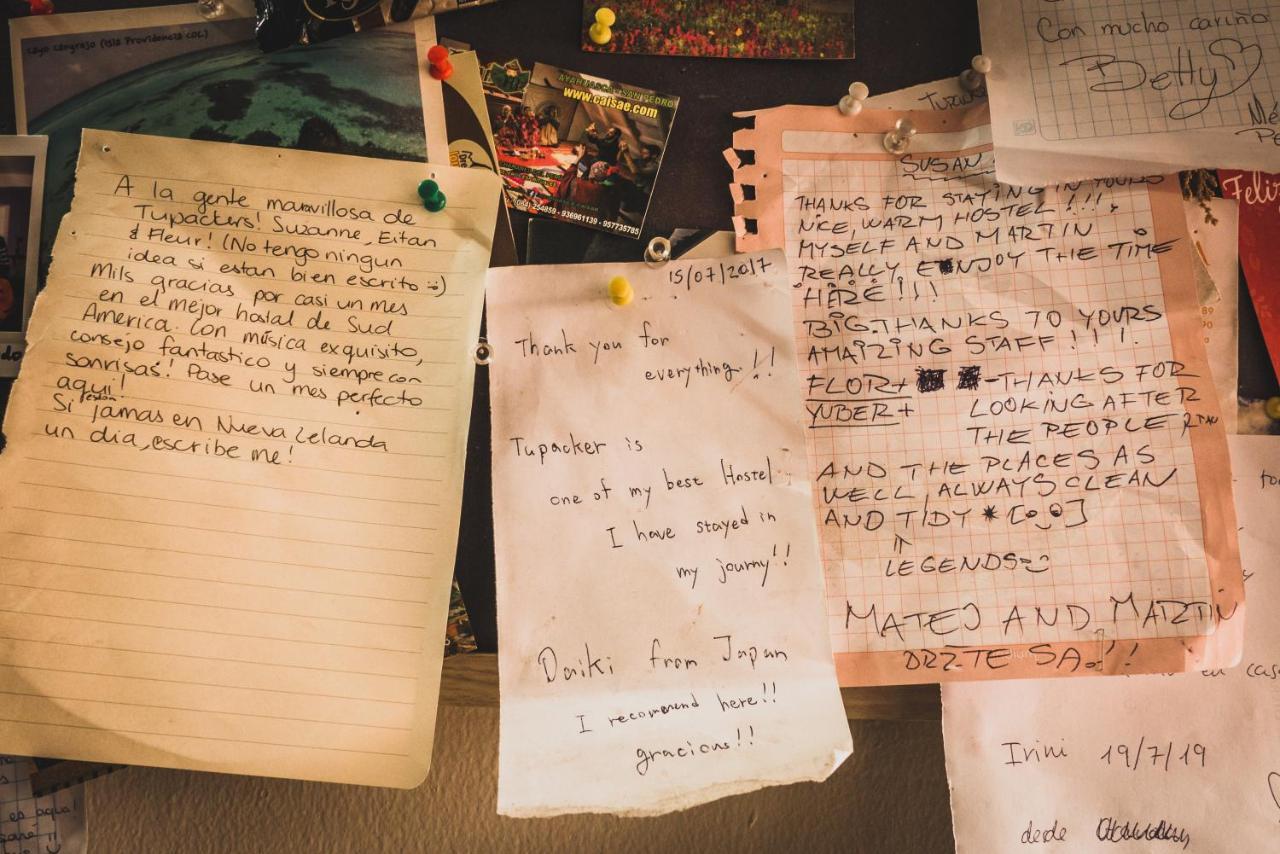 cayo cangrejo (Isla Providencia COL)
A la gente maravillosa de
Tupackers! Suzanne, Eitan
& Fleur! (No tengo ningun
idea si estan bien escrito :)
Mils gracias por casi un mes
en el mejor hostal de Sud
America. Con música exquisito,
consejo fantastico y siempre con
sonrisas! Pase un mes perfecto
aqui!
Si jamas están en Nueva Zelanda
un dia, escribe me!
AYAHUASCA - SAN PEDRO
www.caisae.com
254859 - 936961139 - 957735785
15/07/2017
Thank you for
everything!!
Tupacker is
one of my best Hostel
I have stayed in
my journy!!
Daiki from Japan
I recomend here!!
gracious!!
SUSAN
THANKS FOR STAYING IN YOURS
NICE, WARM HOSTEL!!!,
MYSELF AND MARTIN
REALLY ENJOY THE TIME
HERE!!!
BIG-THANKS TO YOURS
AMAIZING STAFF!!!!
FLOR+ -THANKS FOR
YUBER+ LOOKING AFTER
THE PEOPLE
AND THE PLACES AS
WELL, ALWAYS CLEAN
AND TIDY * [o‿o]
⇑
LEGENDS
MATEJ AND MARTIN
DRZTE SA!!
Con mucho cariño
Betty ♡
Feliz
Irini 19/7/19
desde